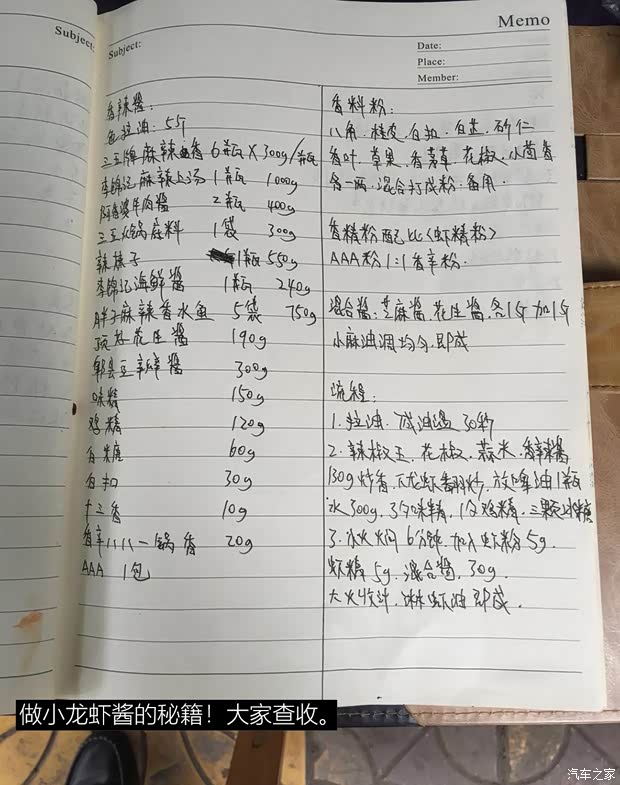 Subject:
Memo
Subject:
Date:
Place:
Member:
香辣酱:
色拉油: 5斤
三五牌麻辣鱼香 6瓶×300g/瓶
李锦记麻辣上汤 1瓶 1000g
阿香婆牛肉酱 2瓶 400g
三五火锅底料 1袋 300g
辣妹子 1瓶 550g
李锦记海鲜酱 1瓶 240g
胖子麻辣香水鱼 5袋 750g
花生酱 190g
郫县豆瓣酱 300g
味精 150g
鸡精 120g
白糖 60g
白扣 30g
十三香 10g
香辛八八一锅香 20g
AAA 1包
香料粉:
八角. 桂皮. 白扣. 白芷. 砂仁
香叶. 草果. 香茅草. 花椒. 小茴香
各一两, 混合打成粉. 备用.
香精粉配比(虾精粉)
AAA粉1:1香辛粉.
混合酱: 芝麻酱. 花生酱. 各1斤 加1斤
小麻油调均匀. 即成
流程:
1. 拉油. 油温 30秒
2. 辣椒王. 花椒. 蒜米. 香辣酱
130g炒香. 下龙虾翻炒. 放啤酒1瓶
水300g. 3勺味精. 1勺鸡精. 三颗冰糖
3. 小火焖6分钟. 加入虾粉5g.
虾精5g. 混合酱. 30g.
大火收汁. 淋虾油即成.
做小龙虾酱的秘籍！大家查收。
汽车之家